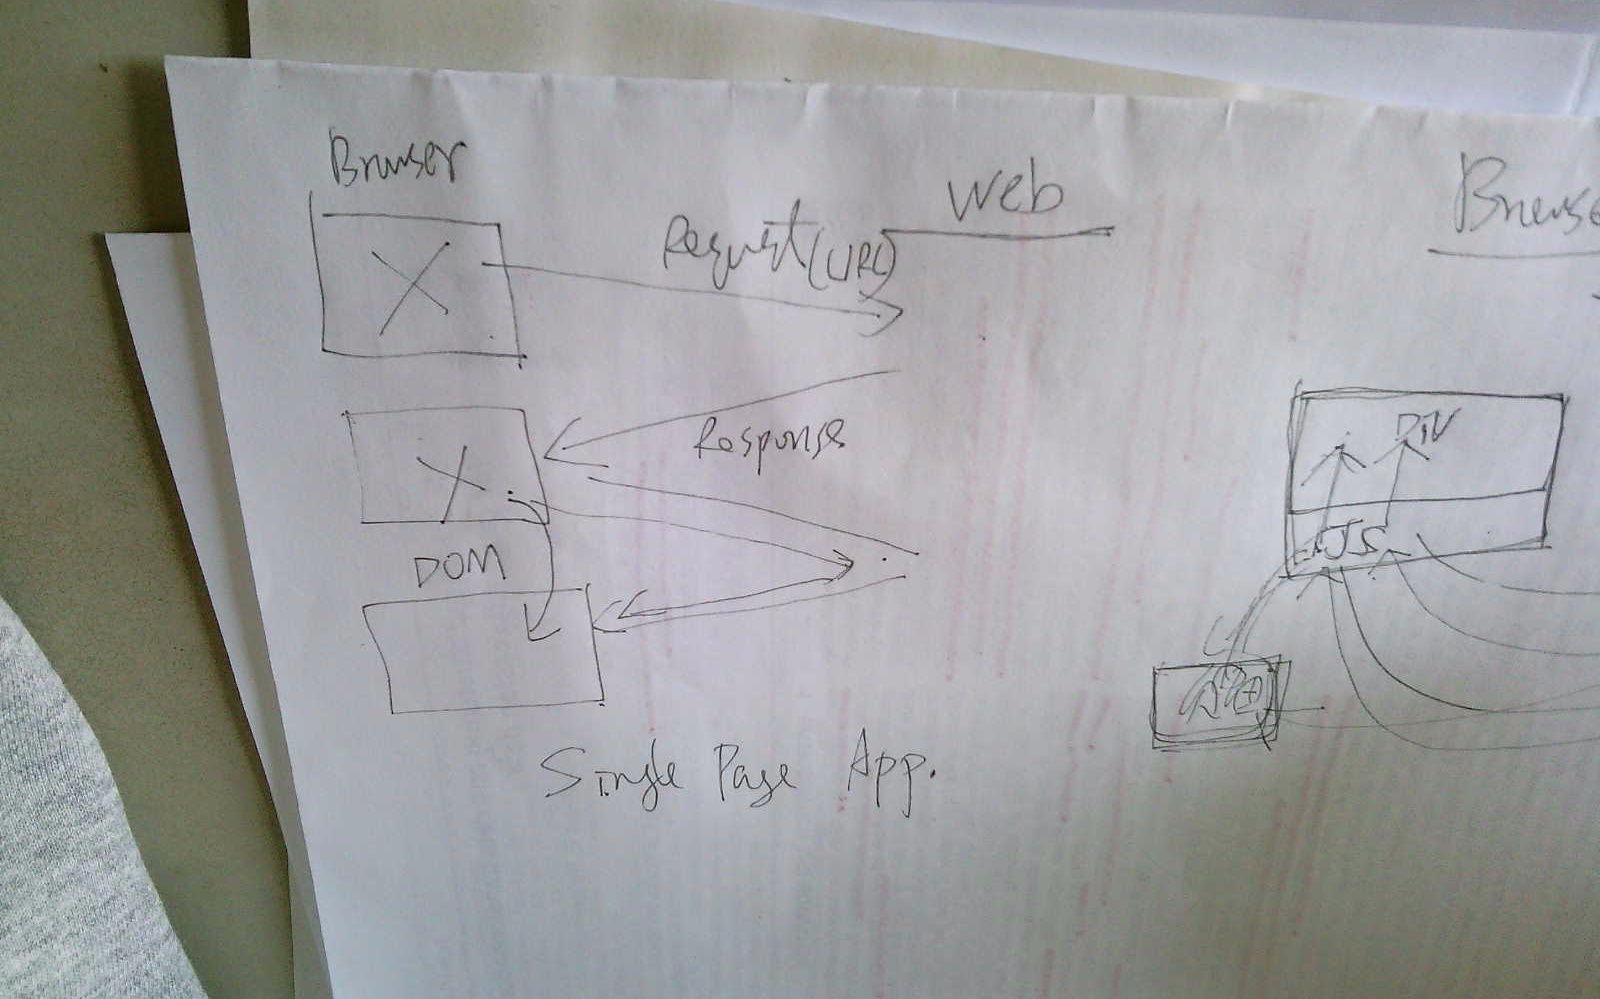 Browser
Web
Request(URL)
Response
DOM
Single Page App.
Browse
DIV
JS